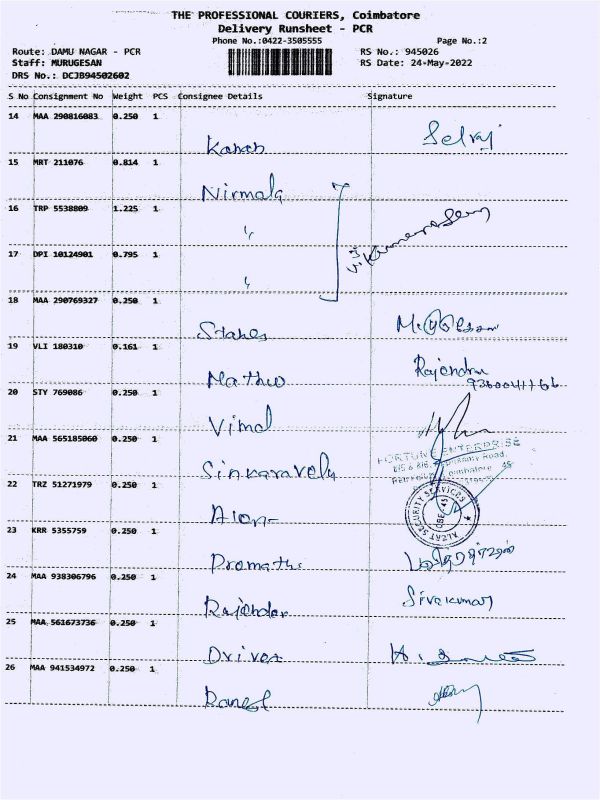 THE PROFESSIONAL COURIERS, Coimbatore
Delivery Runsheet - PCR
Phone No.:0422-3505555 Page No.:2
Route: DAMU NAGAR - PCR RS No.: 945026
Staff: MURUGESAN RS Date: 24-May-2022
DRS No.: DCJB94502602
S No Consignment No Weight PCS Consignee Details Signature
14 MAA 290816083 0.250 1
Selraj
15 MRT 211076 0.814 1
Nirmala
16 TRP 5538809 1.225 1
"
17 DPI 10124901 0.795 1
"
18 MAA 290769327 0.250 1
Stanes
19 VLI 180310 0.161 1
Mathew Rajendra
20 STY 769086 0.250 1
Vimal
21 MAA 565185060 0.250 1
FORTUNE ENTERPRISE
Sinkaravelu
22 TRZ 51271979 0.250 1
ALERT SECURITY SERVICES
CBE-45
23 KRR 5355759 0.250 1
24 MAA 938306796 0.250 1
Rajendar Sivakumar
25 MAA 561673736 0.250 1
Driver
26 MAA 941534972 0.250 1